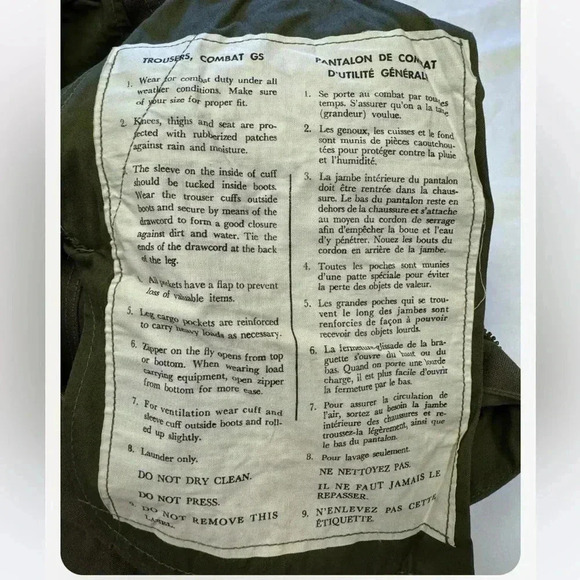 TROUSERS, COMBAT GS
1. Wear for combat duty under all
weather conditions. Make sure
of your size for proper fit.
2. Knees, thighs and seat are pro-
tected with rubberized patches
against rain and moisture.
The sleeve on the inside of cuff
should be tucked inside boots.
Wear the trouser cuffs outside
boots and secure by means of the
drawcord to form a good closure
against dirt and water. Tie the
ends of the drawcord at the back
of the leg.
All pockets have a flap to prevent
loss of valuable items.
5. Leg cargo pockets are reinforced
to carry heavy loads as necessary.
6. Zipper on the fly opens from top
or bottom. When wearing load
carrying equipment, open zipper
from bottom for more ease.
7. For ventilation wear cuff and
sleeve cuff outside boots and roll-
ed up slightly.
8. Launder only.
DO NOT DRY CLEAN.
DO NOT PRESS.
9. DO NOT REMOVE THIS
LABEL.
PANTALON DE COMBAT
D'UTILITÉ GÉNÉRAL
1. Se porte au combat par tous
temps. S'assurer qu'on a la
(grandeur) voulue.
2. Les genoux, les cuisses et le fond
sont munis de pièces caoutchou-
tées pour protéger contre la pluie
et l'humidité.
3. La jambe intérieure du pantalon
doit être rentrée dans la chaus-
sure. Le bas du pantalon reste en
dehors de la chaussure et s'attache
au moyen du cordon de serrage
afin d'empêcher la boue et l'eau
d'y pénétrer. Nouez les bouts du
cordon en arrière de la jambe.
4. Toutes les poches sont munies
d'une patte spéciale pour éviter
la perte des objets de valeur.
5. Les grandes poches qui se trou-
vent le long des jambes sont
renforcies de façon à pouvoir
recevoir des objets lourds.
6. La fermeture-glissade de la bra-
guette s'ouvre du haut ou du
bas. Quand on porte une lourde
charge, il est plus facile d'ouvrir
la fermeture par le bas.
7. Pour assurer la circulation de
l'air, sortez au besoin la jambe
intérieure des chaussures et re-
troussez-la légèrement, ainsi que
le bas du pantalon.
8. Pour lavage seulement.
NE NETTOYEZ PAS.
IL NE FAUT JAMAIS LE
REPASSER.
9. N'ENLEVEZ PAS CETTE
ÉTIQUETTE.